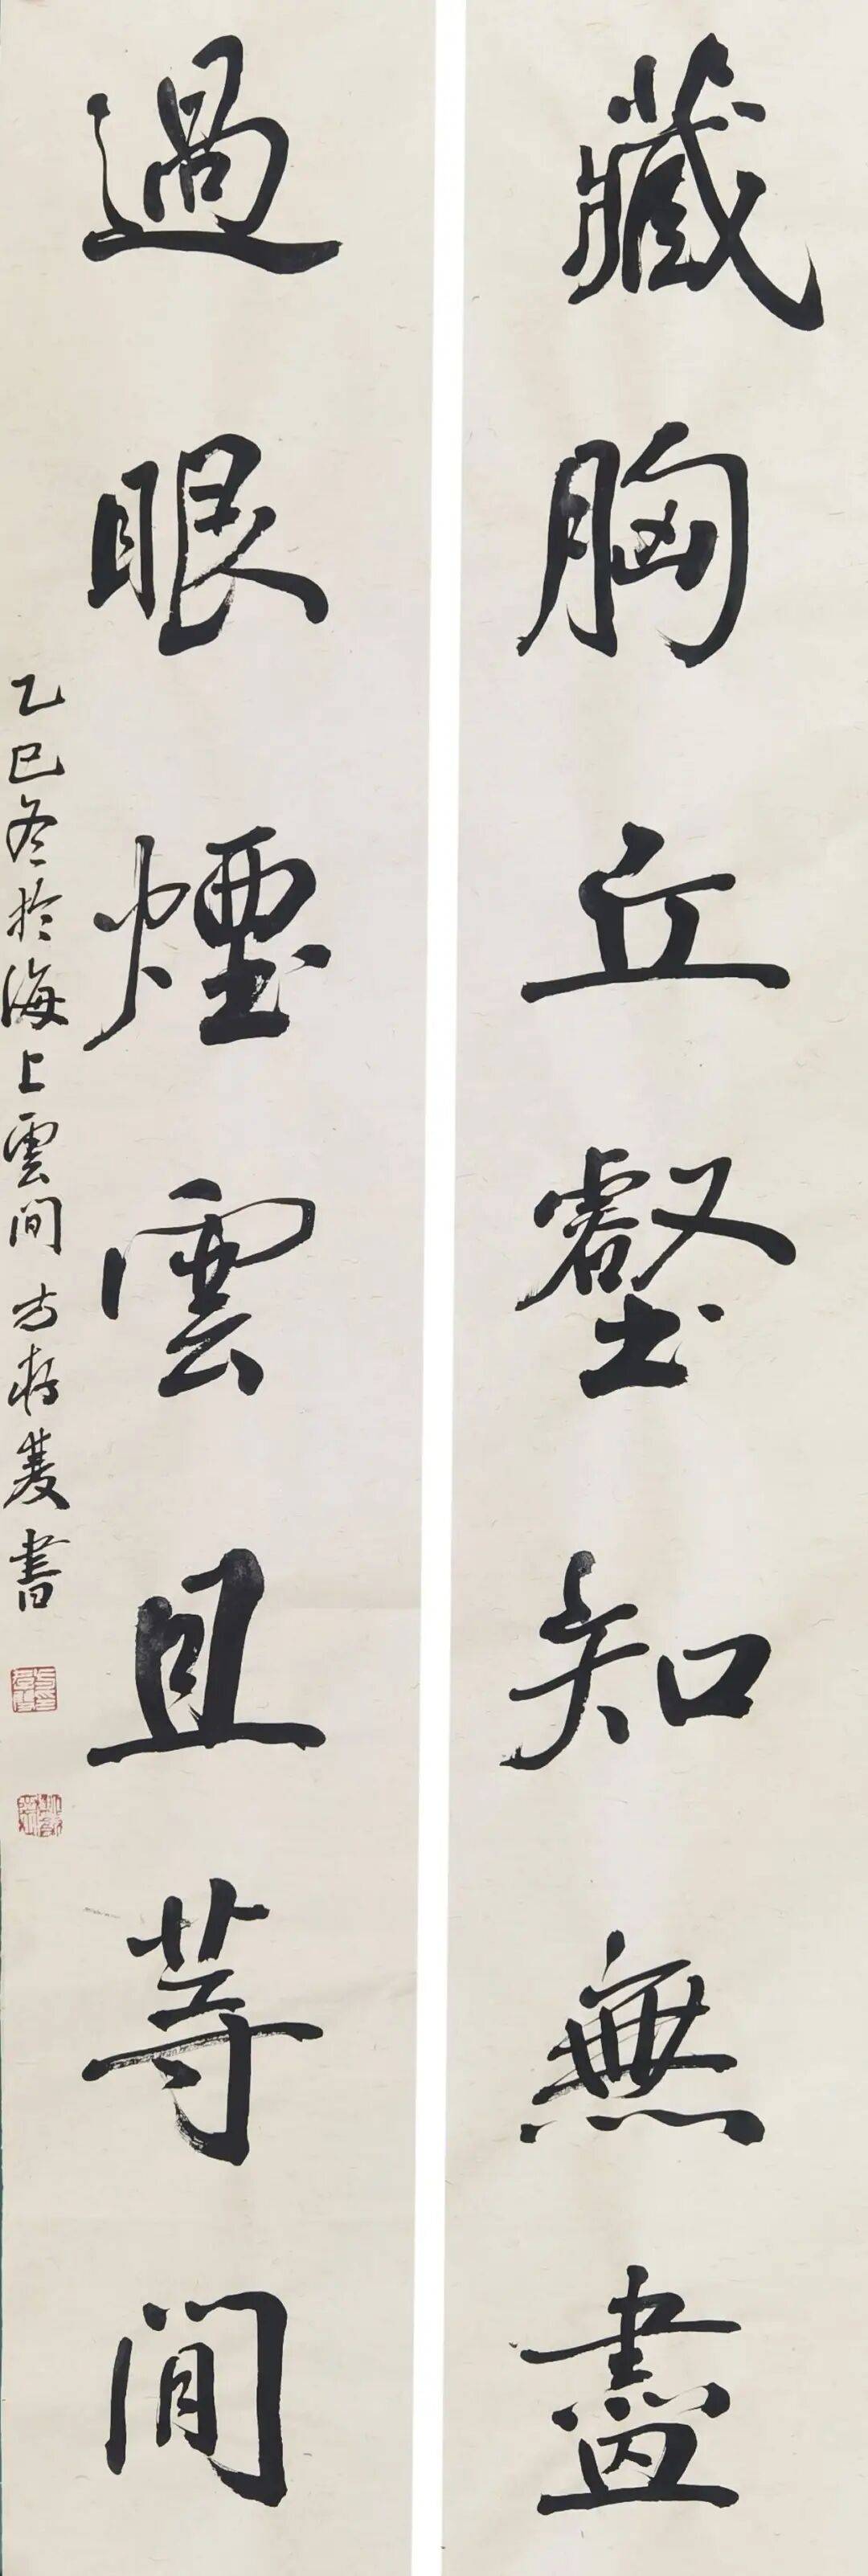 藏胸丘壑知無盡
過眼煙雲且等閒
乙巳冬於海上雲間方
書